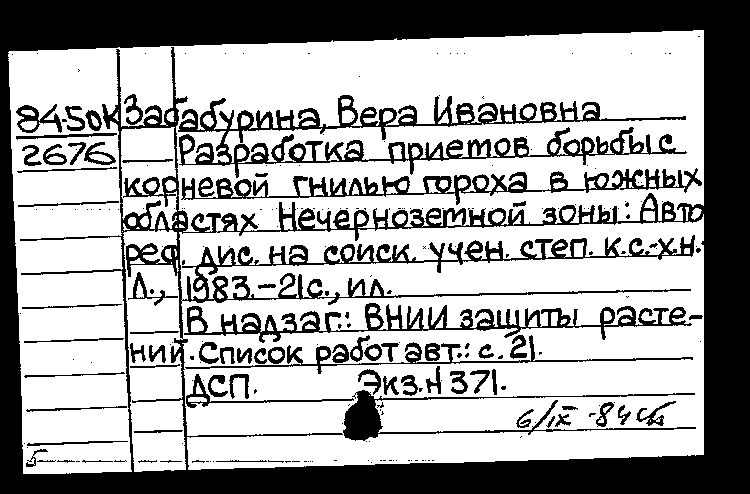 84-5ОК Забабурина, Вера Ивановна
2676 Разработка приемов борьбы с
корневой гнилью гороха в южных
областях Нечерноземной зоны: Авто
реф. дис. на соиск. учен. степ. к.с.-х.н.-
Л., 1983.-21с., ил.
В надзаг.: ВНИИ защиты расте-
ний. Список работ авт.: с. 21.
ДСП. Экз.N 371.
6/IX-84
5